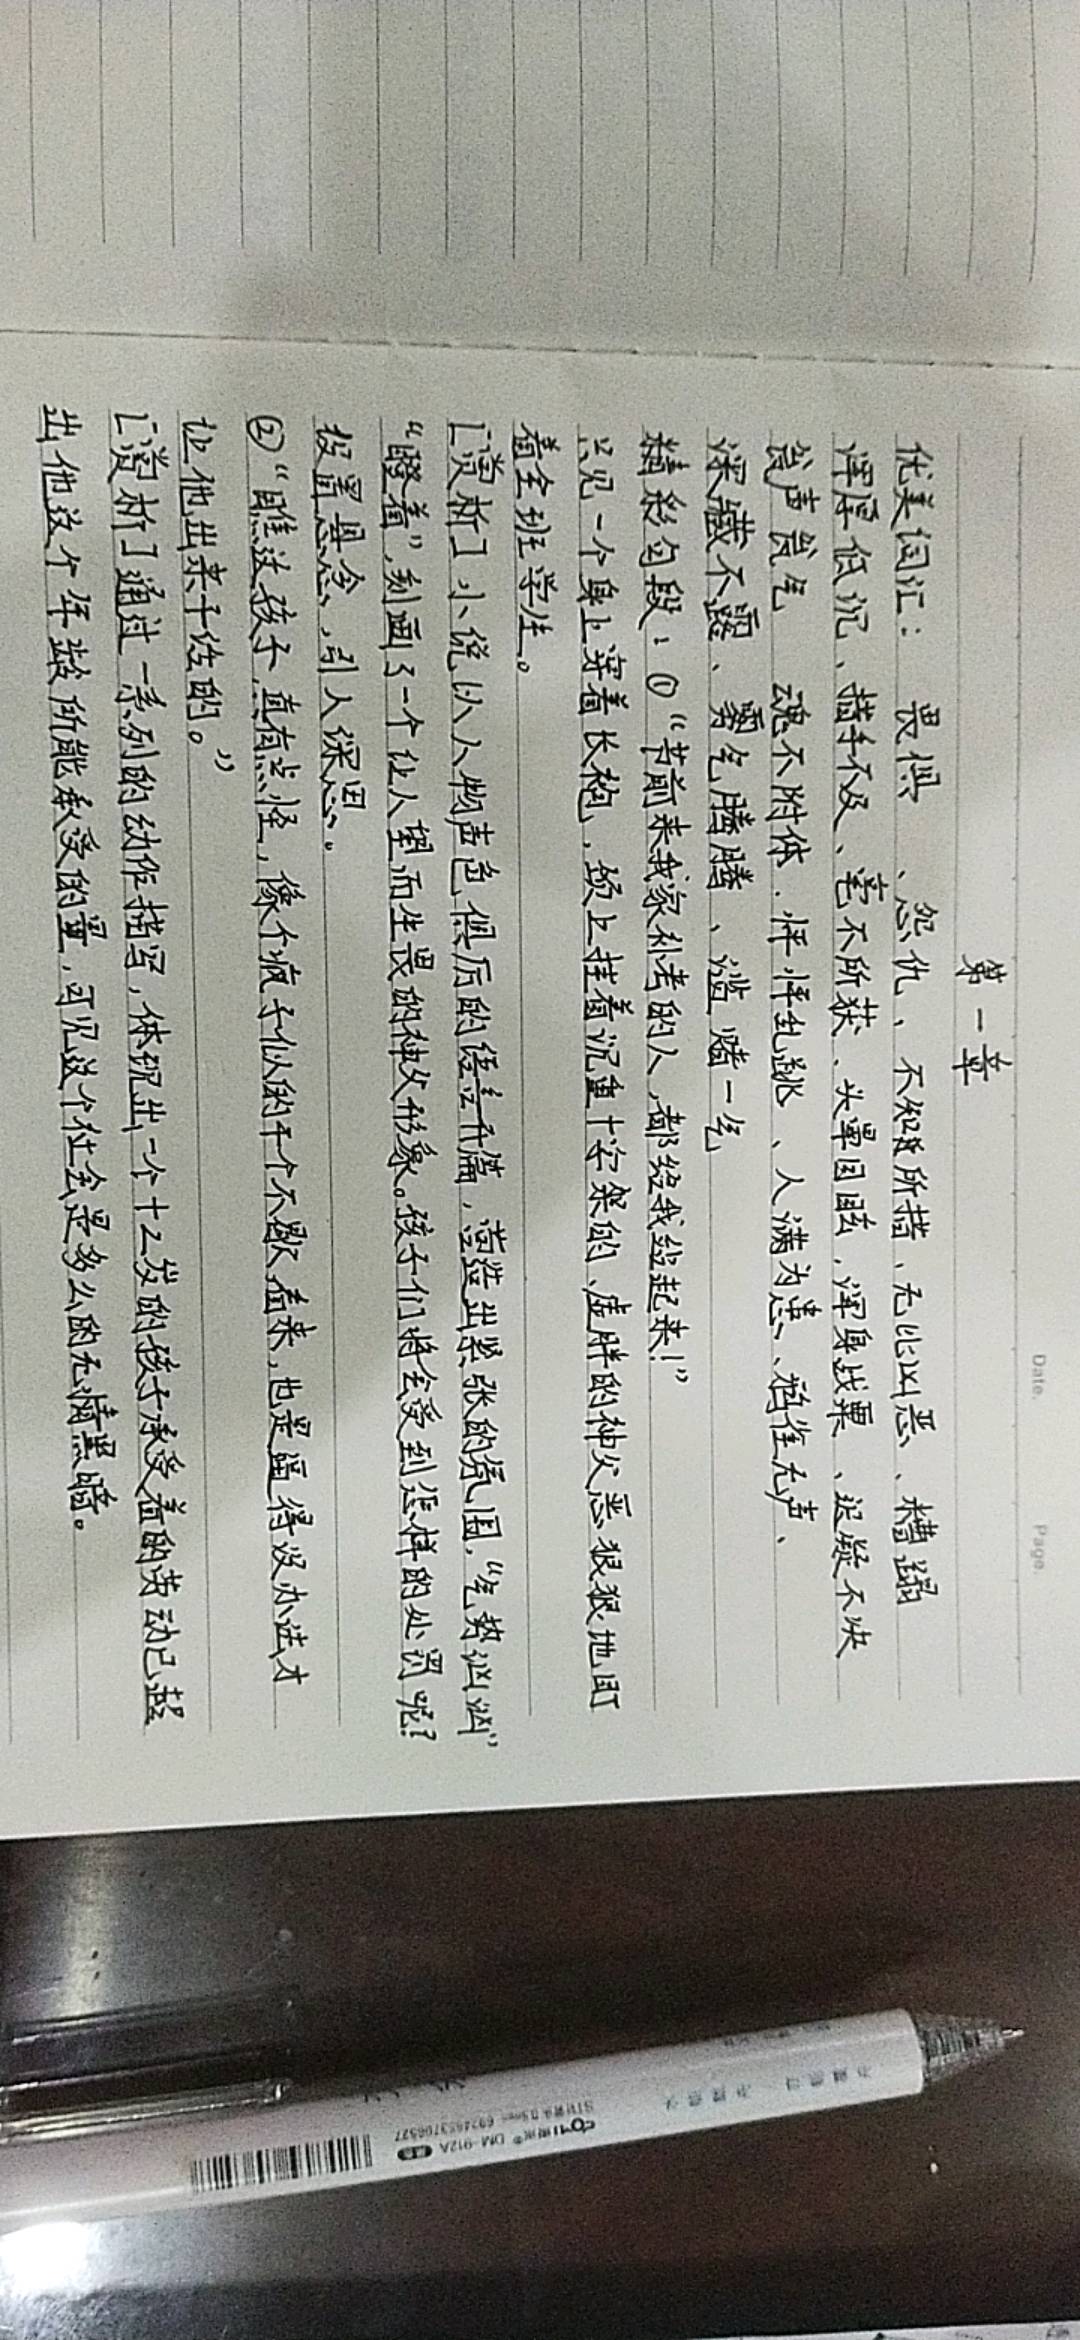 Date.
Page.
第一章
优美词汇：畏惧、怨仇、不知所措、无比凶恶、糟蹋
浑厚低沉、措手不及、毫不所获、头晕目眩，浑身战栗、迟疑不决
瓮声瓮气 魂不附体．怦怦乱跳、人满为患、鸦雀无声、
深藏不露、雾气腾腾、滥赌一气
精彩句段：①“节前来我家补考的人，都给我站起来！”
只见一个身上穿着长袍，颈上挂着沉重十字架的、虚胖的神父恶狠狠地盯
着全班学生。
[赏析]小说以人物声色俱厉的语言开篇，营造出紧张的氛围，“气势汹汹”
“瞪着”，刻画了一个让人望而生畏的神父形象。孩子们将会受到怎样的处罚呢？
设置悬念，引人深思。
②“瞧这孩子真有点怪，像个疯子似的干个不歇，看来，也是逼得没办法才
让他出来干活的。”
[赏析]通过一系列的动作描写，体现出一个十二岁的孩子承受着的劳动已超
出他这个年龄所能承受的量，可见这个社会是多么的无情黑暗。
DM-912A
6924853706527